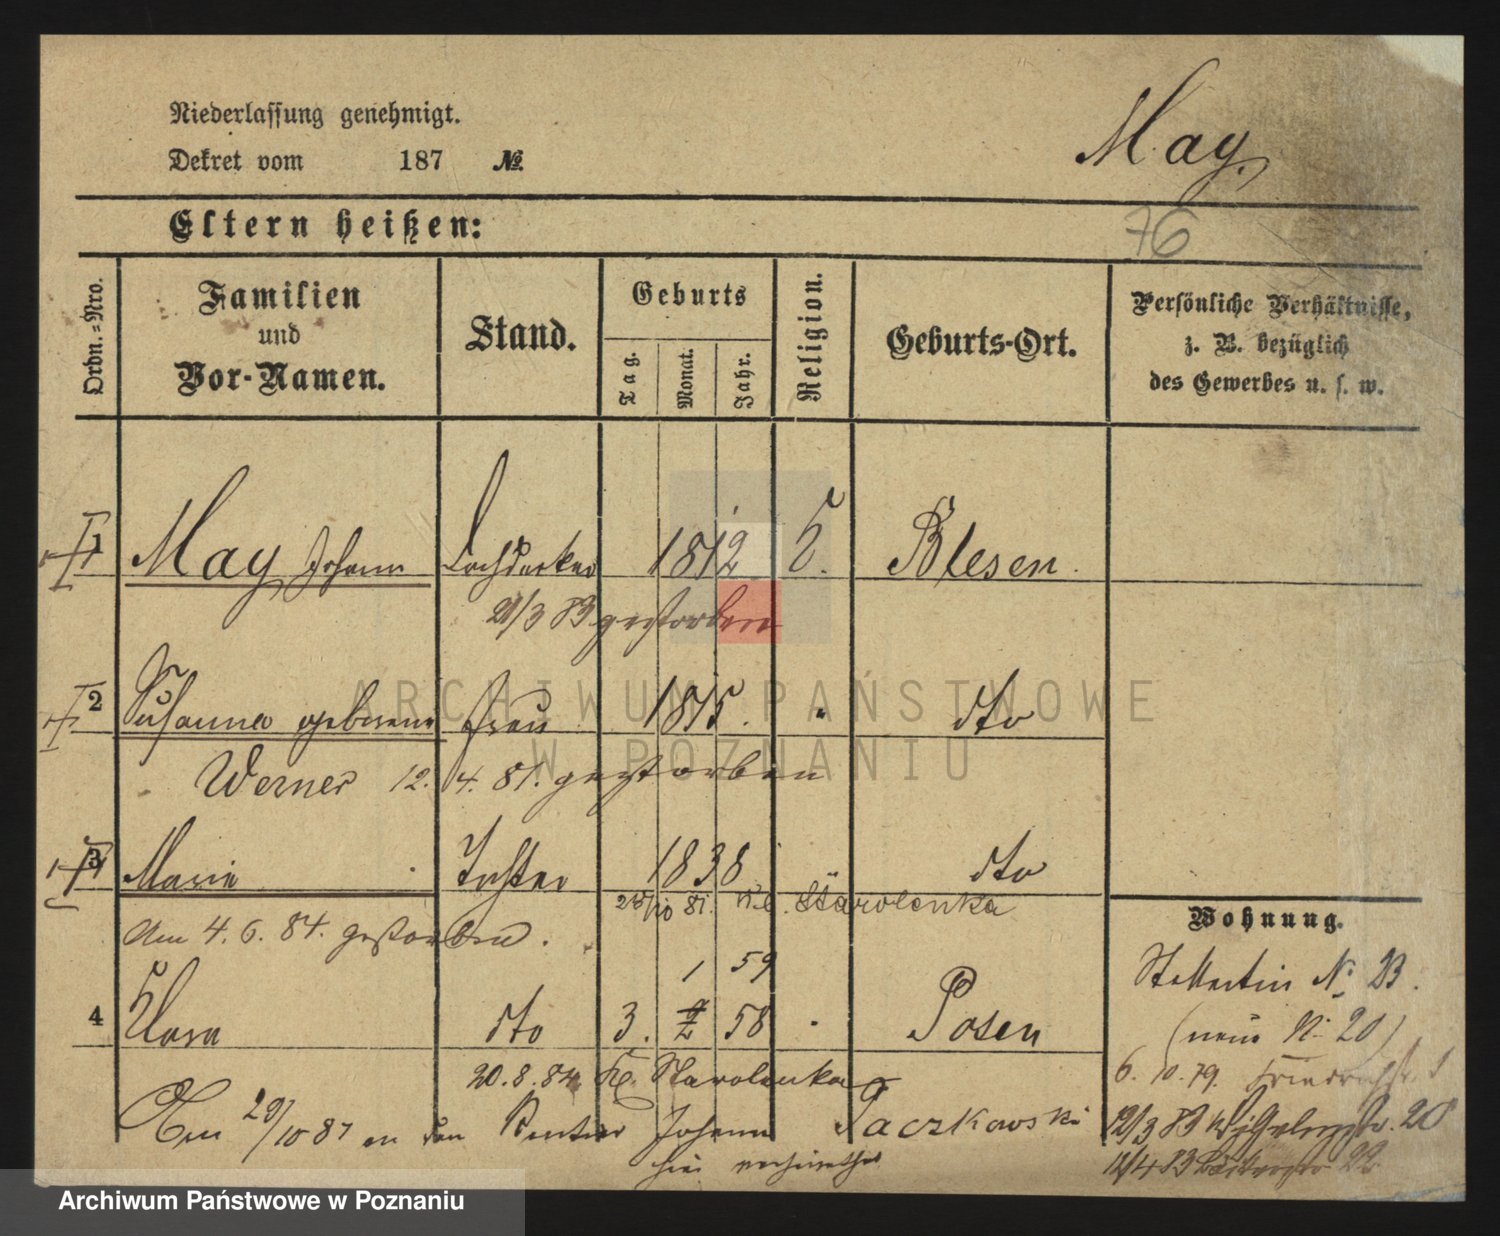 Niederlassung genehmigt.
Dekret vom 187 №
May.
76
Eltern heißen:
Ordn.-Nro.
Familien
und
Vor-Namen.
Stand.
Geburts
Tag.
Monat.
Jahr.
Religion.
Geburts-Ort.
Persönliche Verhältnisse,
z. B. bezüglich
des Gewerbes u. s. w.
1 May Johann 1812 Blesen.
21/3 83 gestorben
2 Susanna geborene Frau 1815. " dto
Werner 12. 4. 81. gestorben
3 Marie Tochter 1838 dto
81. Kl. Starolenka
Am 4. 6. 84. gestorben.
Wohnung.
1 59
St Martin N: 23.
4 Clara dto 3. 2 58 " Posen
(neue N: 20)
20.8.84 Kl. Starolenka
6. 10. 79. Friedrichstr. 1
Am 29/10 87 an den Rentier Johann Paczkowski
hier verheirathet
12/3 83 20
12/4 83 22
ARCHIWUM PAŃSTWOWE
W POZNANIU
Archiwum Państwowe w Poznaniu